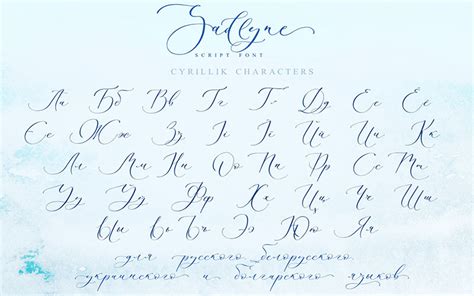 Sadlyne
SCRIPT FONT
CYRILLIK CHARACTERS
Аа Бб Вв Гг Ґґ Дд Ее Ёё
Єє Жж Зз Іі Її Ии Йй Кк
Лл Мм Нн Оо Пп Рр Сс Тт
Уу Ўў Фф Хх Цц Чч Шш Щщ
Ыы Ьь Ъъ Ээ Юю Яя
для русского белорусского
украинского и болгарского языков